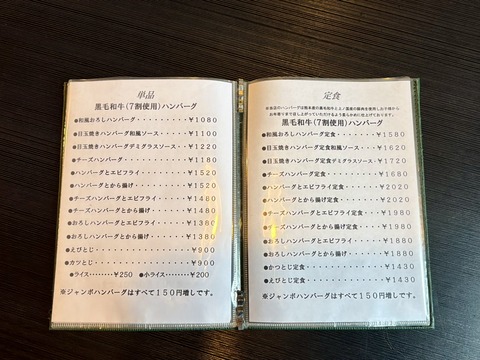 単品
黒毛和牛(7割使用)ハンバーグ
●和風おろしハンバーグ・・・・・・・¥1080
●目玉焼きハンバーグ和風ソース・・・¥1100
●目玉焼きハンバーグデミグラスソース・¥1220
●チーズハンバーグ・・・・・・・・・¥1180
●ハンバーグとエビフライ・・・・・・¥1520
●ハンバーグとから揚げ・・・・・・・¥1520
●チーズハンバーグとエビフライ・・・¥1480
●チーズハンバーグとから揚げ・・・・¥1480
●おろしハンバーグとエビフライ・・・¥1380
●おろしハンバーグとから揚げ・・・・¥1380
●えびとじ・・・・・・・・・・・・・¥900
●カツとじ・・・・・・・・・・・・・¥900
●ライス・・・・・・・¥250 ●小ライス・・・・・¥200
※ジャンボハンバーグはすべて150円増しです。
定食
黒毛和牛(7割使用)ハンバーグ
●和風おろしハンバーグ定食・・・・・・・¥1580
●目玉焼きハンバーグ定食和風ソース・・・¥1620
●目玉焼きハンバーグ定食デミグラスソース・¥1720
●チーズハンバーグ定食・・・・・・・・・¥1680
●ハンバーグとエビフライ定食・・・・・・¥2020
●ハンバーグとから揚げ定食・・・・・・・¥2020
●チーズハンバーグとエビフライ定食・・・¥1980
●チーズハンバーグとから揚げ定食・・・・¥1980
●おろしハンバーグとエビフライ・・・・・¥1880
●おろしハンバーグとから揚げ・・・・・・¥1880
●かつとじ定食・・・・・・・・・・・・・¥1430
●えびとじ定食・・・・・・・・・・・・・¥1430
※ジャンボハンバーグはすべて150円増しです。